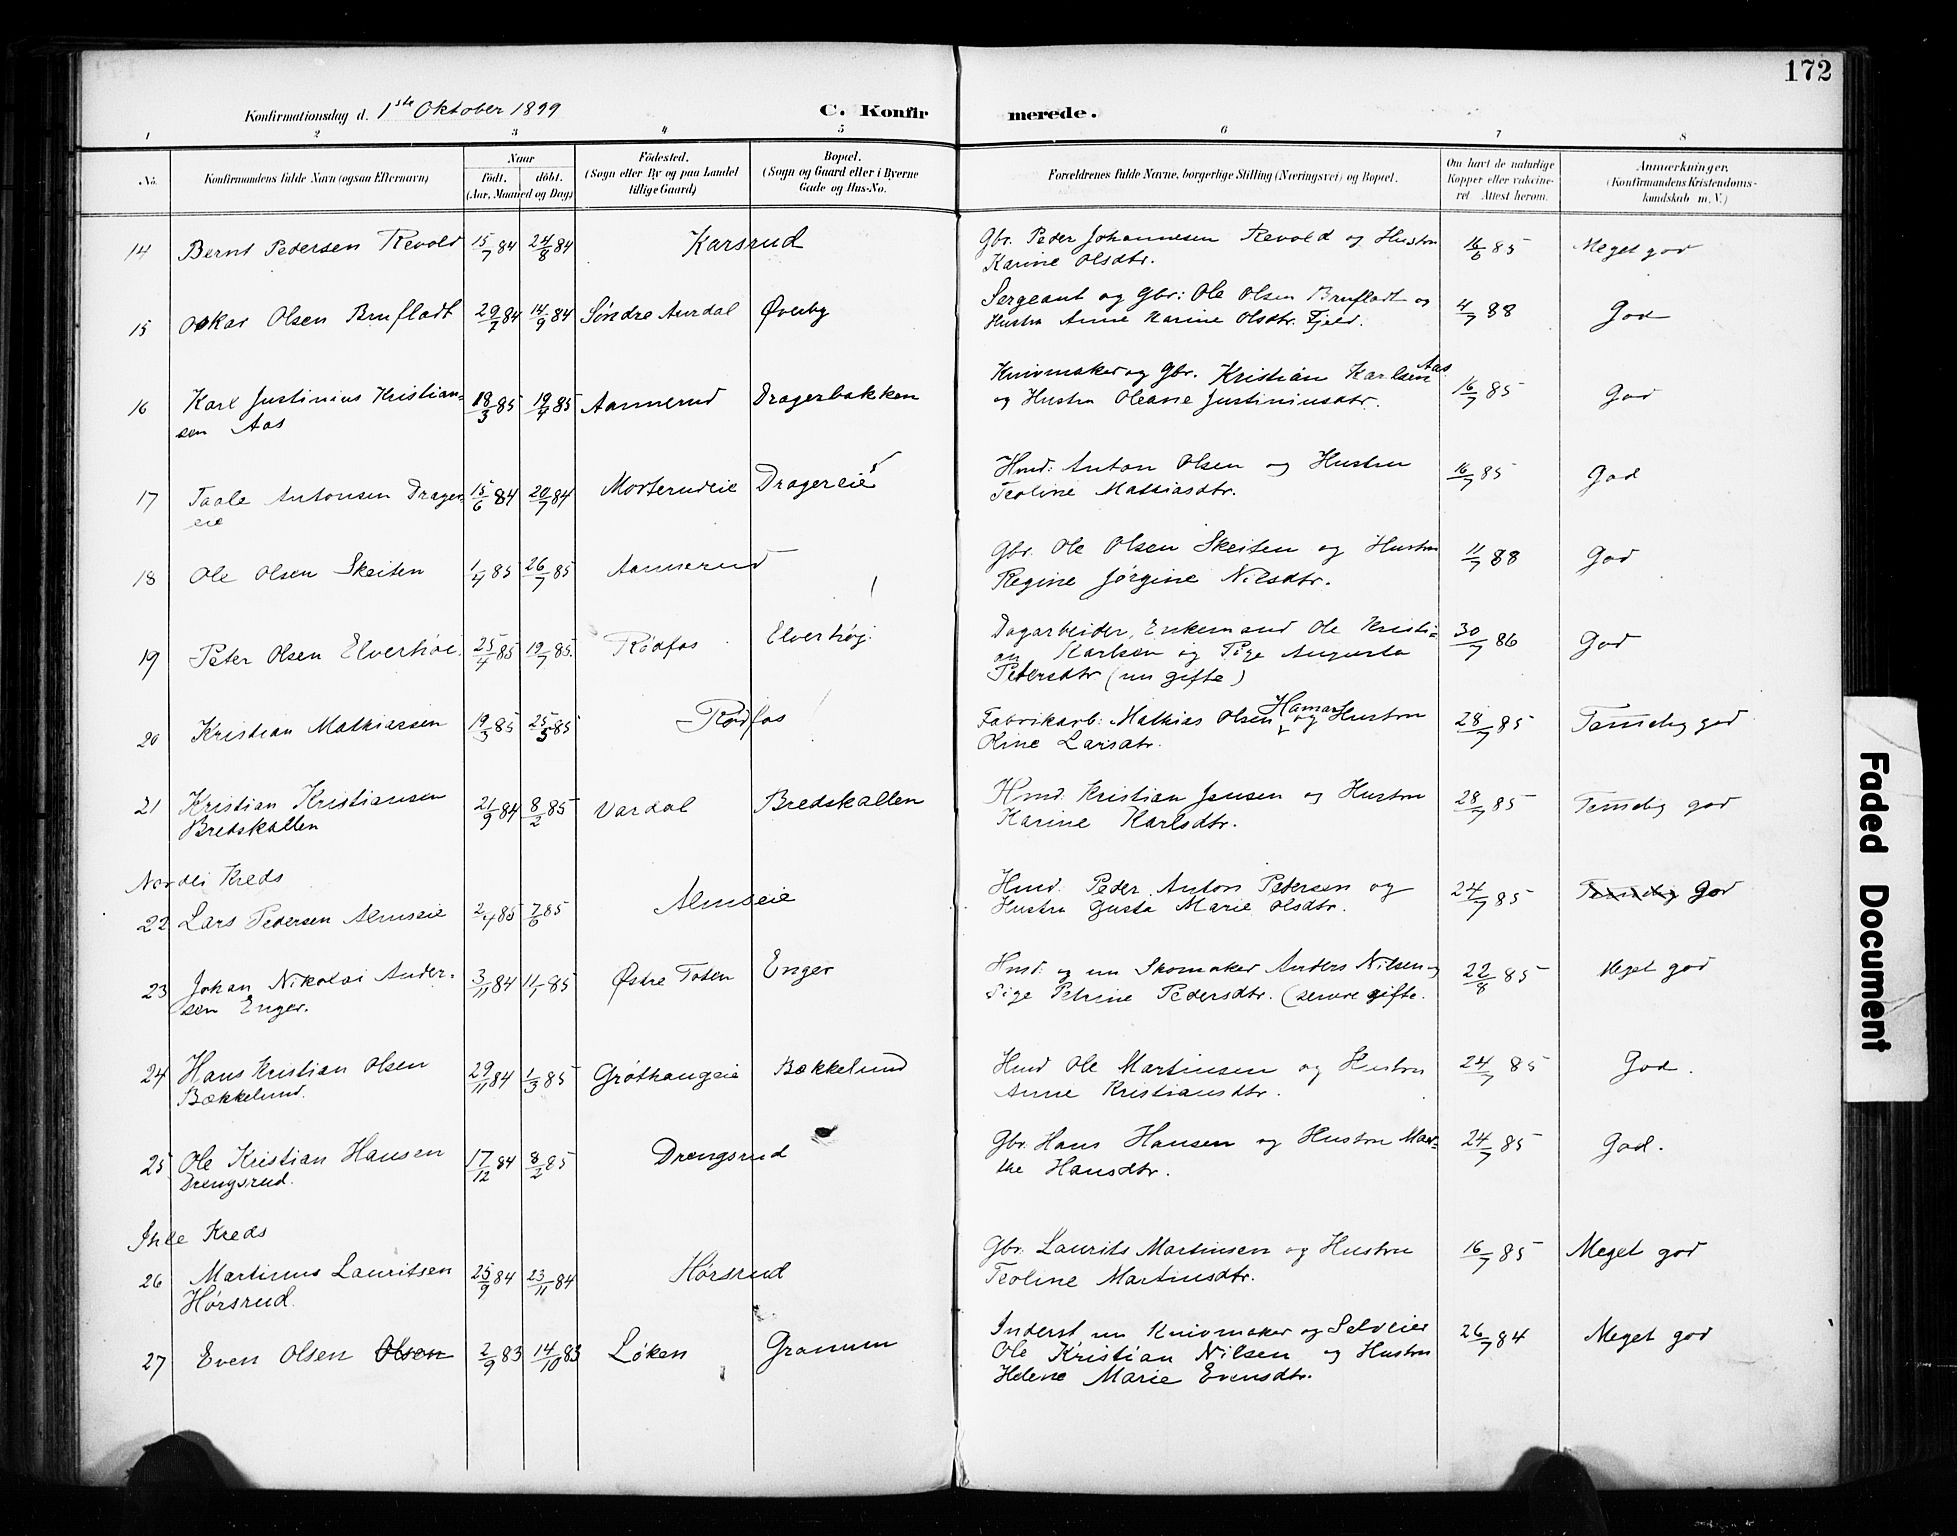 172
Konfirmationsdag d. 1ste Oktober 1899 C. Konfirmerede.
1 2 3 4 5 6 7 8
No. Konfirmandens fulde Navn (ogsaa Efternavn) Naar Födt. döbt. (Aar, Maaned og Dag) Födested. (Sogn eller By og paa Landet tillige Gaard) Bopæl. (Sogn og Gaard eller i Byerne Gade og Hus-No. Forældrenes fulde Navne, borgerlige Stilling (Næringsvei) og Bopæl. Om havt de naturlige Kopper eller vakcineret Attest herom. Anmærkninger. (Konfirmandens Kristendomskundskab m. V.)
14 Bernt Pedersen Revold 15/7 84 24/8 84 Karsrud Gbr. Peder Johannesen Revold og Hustru 16/6 85 Meget god
Karine Olsdtr.
15 Oskar Olsen Brufladt 29/7 84 14/9 84 Søndre Aurdal Øverby Sergeant og Gbr: Ole Olsen Brufladt og 4/7 88 God
Hustru Anne Karine Olsdtr. Fjeld.
16 Karl Justinius Kristian- 18/3 85 19/4 85 Aannerud Dragerbakken Knivmaker og Gbr. Kristian Karlsen Aas 16/7 85 God
sen Aas og Hustru Oleane Justiniusdtr.
17 Taale Antonsen Drager- 15/6 84 20/7 84 Morterudeie Dragereie Hmd: Anton Olsen og Hustru 16/7 85 God
eie Teoline Mathiasdtr.
18 Ole Olsen Skeiten 1/4 85 26/7 85 Aannerud Gbr. Ole Olsen Skeiten og Hustru 11/7 88 God
Regine Jørgine Nilsdtr.
19 Peter Olsen Elverhøi. 25/4 85 19/7 85. Rødfos Elverhøj. Dagarbeider, Enkemand Ole Kristi- 30/7 86 God
an Karlsen og Pige Augusta
Petersdtr (un gifte)
20 Kristian Mathiassen 19/3 85 25/5 85 Rødfos Fabrikarb: Mathias Olsen Hamar og Hustru 28/7 85 Temmelig god
Oline Larsdtr.
21 Kristian Kristiansen 21/9 84 8/2 85 Vardal Bredskallen Hmd. Kristian Jensen og Hustru 28/7 85 Temmelig god
Bredskallen Karine Karlsdtr.
Nordli Kreds
22 Lars Pedersen Almseie 2/4 85 7/6 85 Almseie Hmd. Peder Anton Petersen og 24/7 85 Temmelig God
Hustru Gusta Marie Olsdtr.
23 Johan Nikolai Ander- 3/11 84 11/1 85 Østre Toten Enger Hmd: og nu Skomaker Anders Nilsen og 22/8 85 Meget god
sen Enger. Pige Petrine Pedersdtr. (senere gifte.
24 Hans Kristian Olsen 29/11 84 1/3 85 Grøthaugeie Bækkelund Hmd Ole Martinsen og Hustru 24/7 85 God.
Bækkelund. Anne Kristiansdtr.
25 Ole Kristian Hansen 17/12 84 8/2 85 Drengsrud Gbr. Hans Hansen og Hustru Mar- 24/7 85 God.
Drengsrud. the Hansdtr.
Ihle Kreds
26 Martinus Lauritsen 25/9 84 23/11 84 Hørsrud Gbr. Laurits Martinsen og Hustru 16/7 85 Meget god
Hørsrud. Teoline Martinsdtr.
27 Even Olsen Olsen 2/9 83 14/10 83 Løken Granum Inderst nu Knivmaker og Selveier 26/7 84 Meget god
Ole Kristian Nilsen og Hustru
Helene Marie Evensdtr.
Faded Document